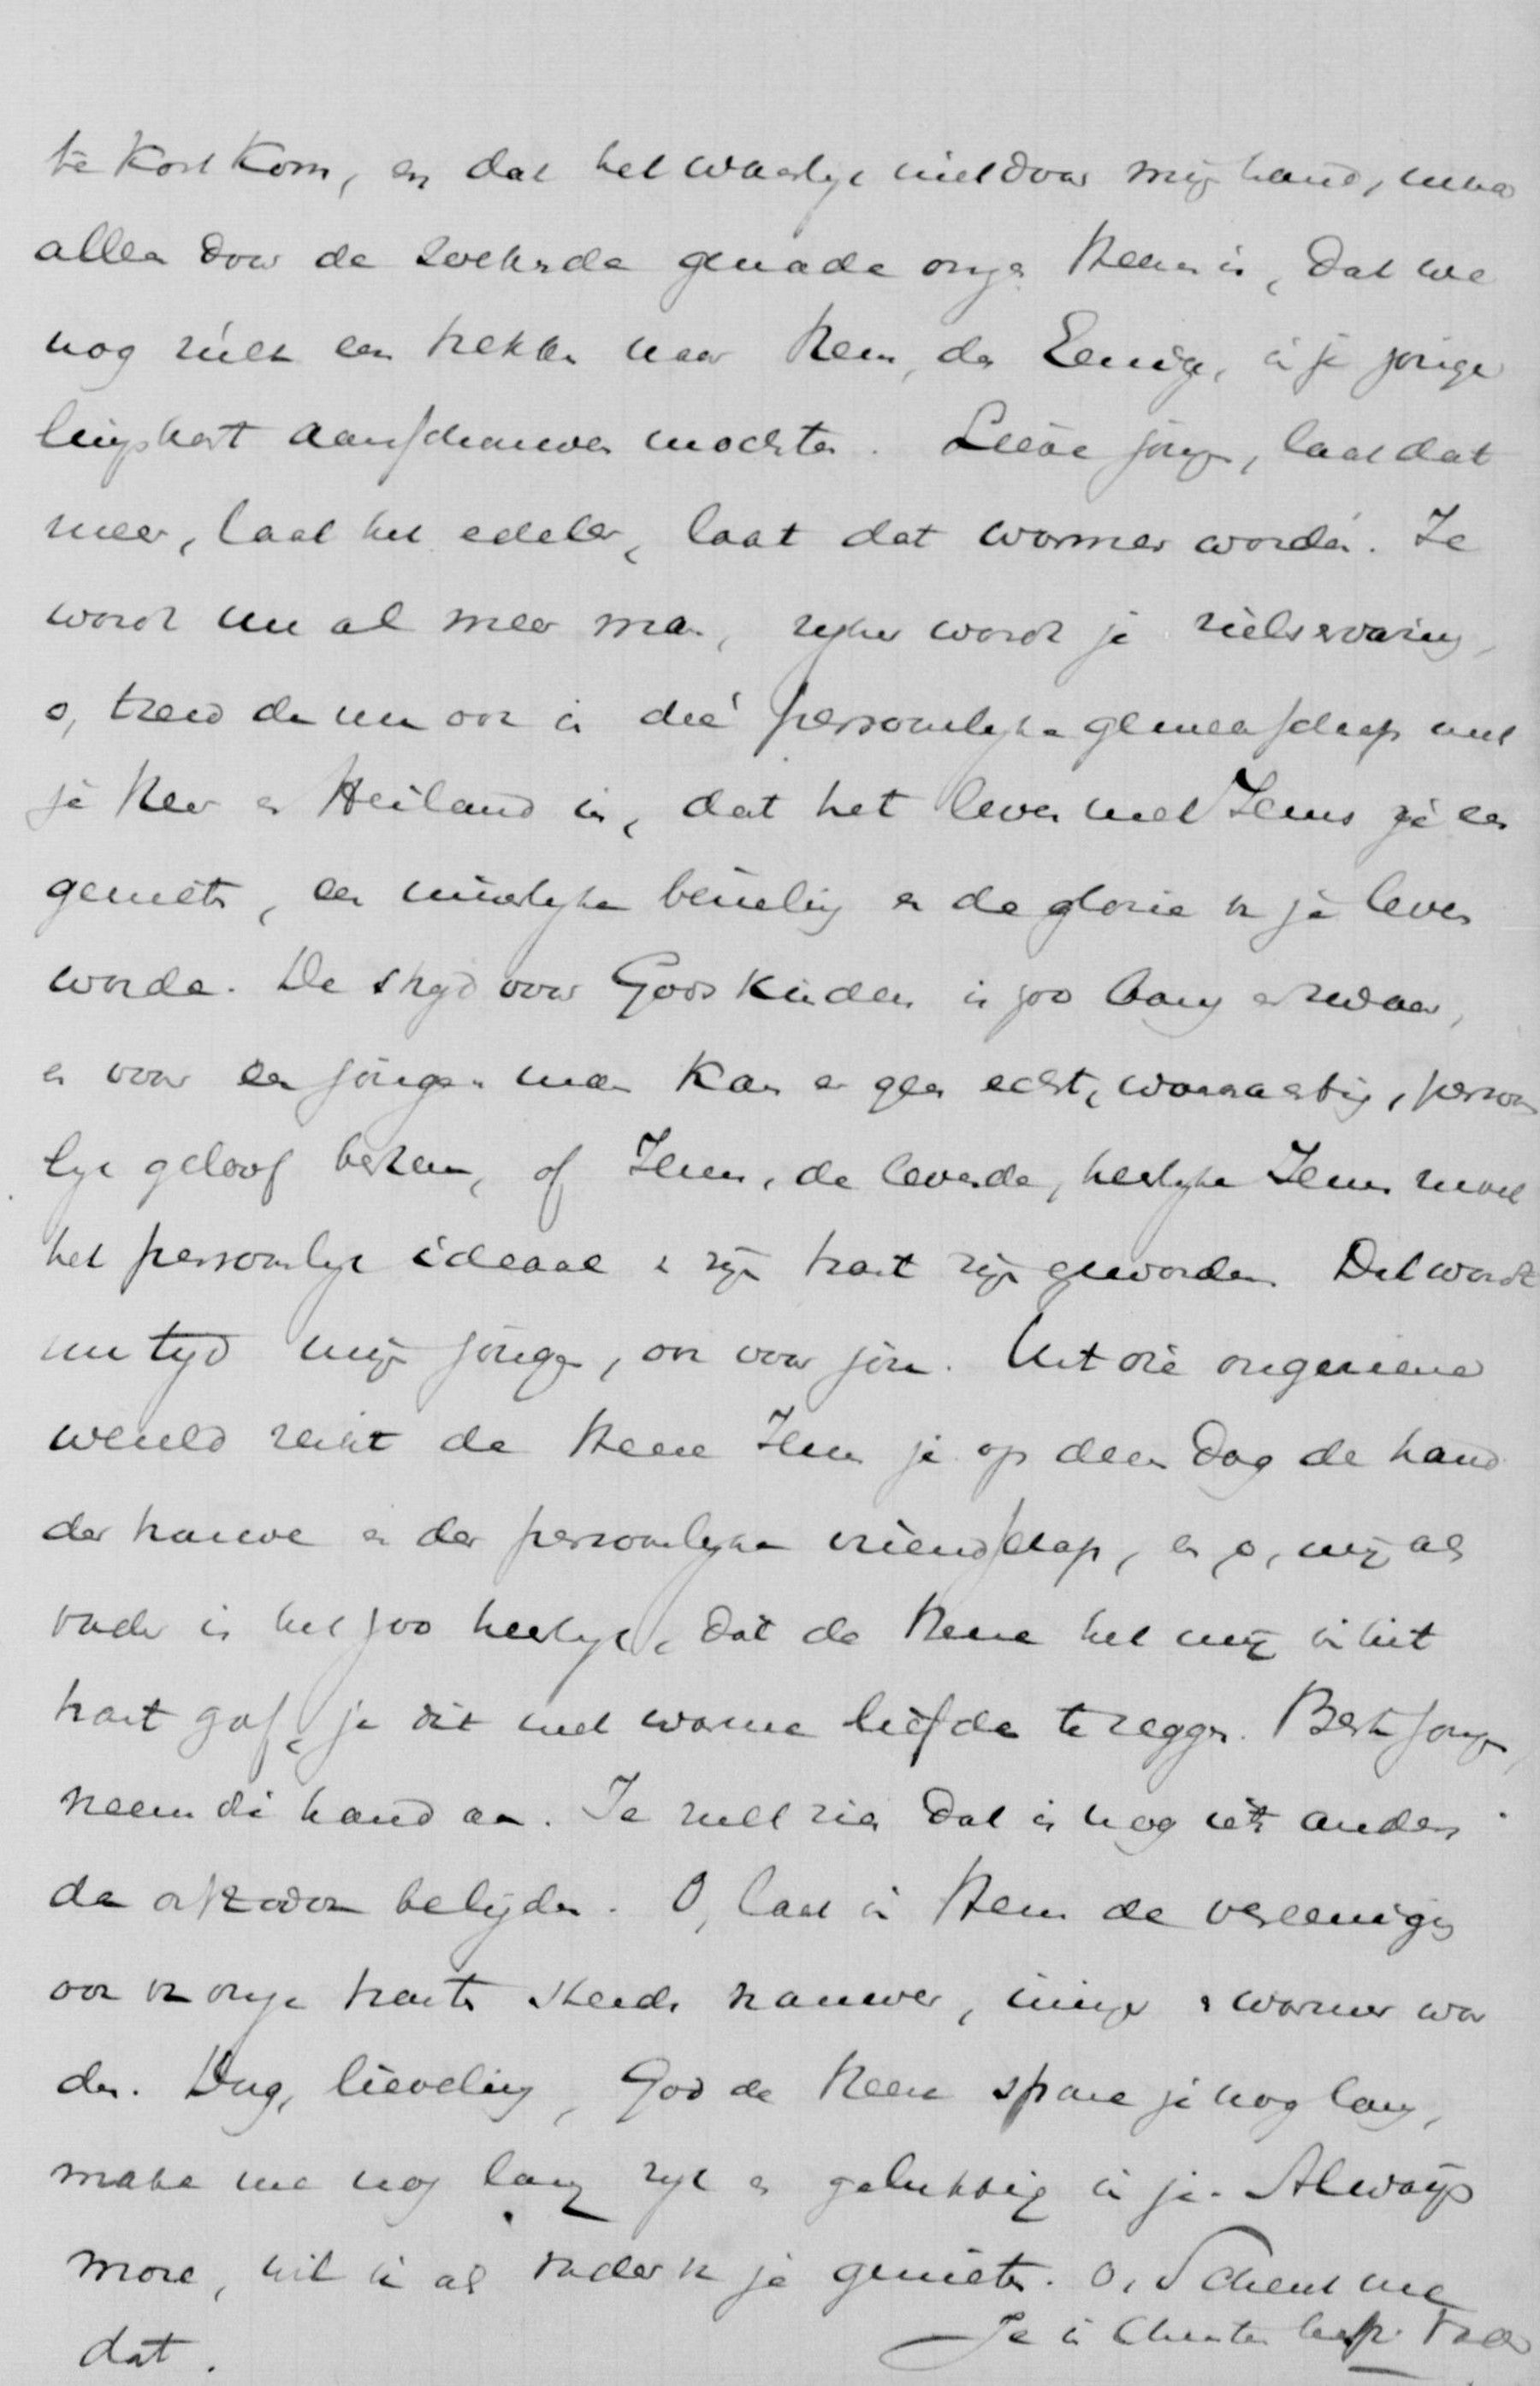 te kort kom, en dat het waarlijk niet door mijn hand, maar
alleen door de zoekende genade onzes Heeren is, dat we
nog zulk een trekken naar Hem, den Eenige, in je jonge
lingshart aanschouwen mochten. Lieve jongen, laat dat
meer, laat het edeler, laat dat warmer worden. Je
wordt nu al meer man, rijker wordt je zielservaring,
o, treed dan nu ook in die persoonlijke gemeenschap met
je Heer en Heiland in, dat het leven met Jezus je een
genieten, een innerlijke bezieling en de glorie in je leven
worde. De strijd voor Gods kinderen is zoo bang en zwaar,
en voor een jongen man kan er geen echt, waarachtig, persoon
lijk geloof bestaan, of Jezus, de levende, heerlijke Jezus moet
het persoonlijk ideaal in zijn hart zijn geworden. Dat wordt
nu tijd mijn jongen, ook voor jou. Uit die ongeziene
wereld reikt de Heere Jezus je op dezen dag de hand
der trouwe en der persoonlijke vriendschap, en o, mij als
vader is het zoo heerlijk, dat de Heere het mij in het
hart gaf, je dit met warme liefde te zeggen. Beste jongen,
neem die hand aan. Je zult zien dat is nog iets anders
dan orthodox belijden. O, laat in Hem de vereeniging
ook in onze harten steeds nauwer, inniger en warmer wor
den. Dag, lieveling, God de Heere spare je nog lang,
make me nog lang rijk en gelukkig in je. Always
more, wil ik als vader in je genieten. O, schenk me
dat.
Je in Christen liefh. Vader